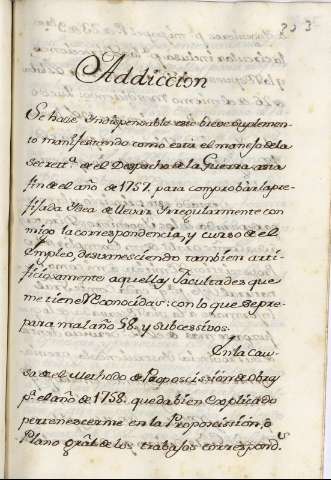 Addiccion
Se hace Indispensable este breve Suplemen-
to manifestando como esta el manejo de la
Secrett.ª de el Despacho de la Guerra asia
fin de el año de 1757, para comprobar la pre-
fijada Idea de llevar Irregularmente con
migo la correspondencia, y curso de el
Empleo desvaneciendo tambien arti-
ficiosamente aquellas Facultades que
me tiene Reconocidas: con lo que se pre-
para mal año 58. y subcessivos.
En la Cau-
sa de el Methodo de Proposcission de Obras
p.ª el año de 1758. queda bien Explicado
pertenezerme en la Proponcission, ô
Plano gral de los trabajos correspond.s